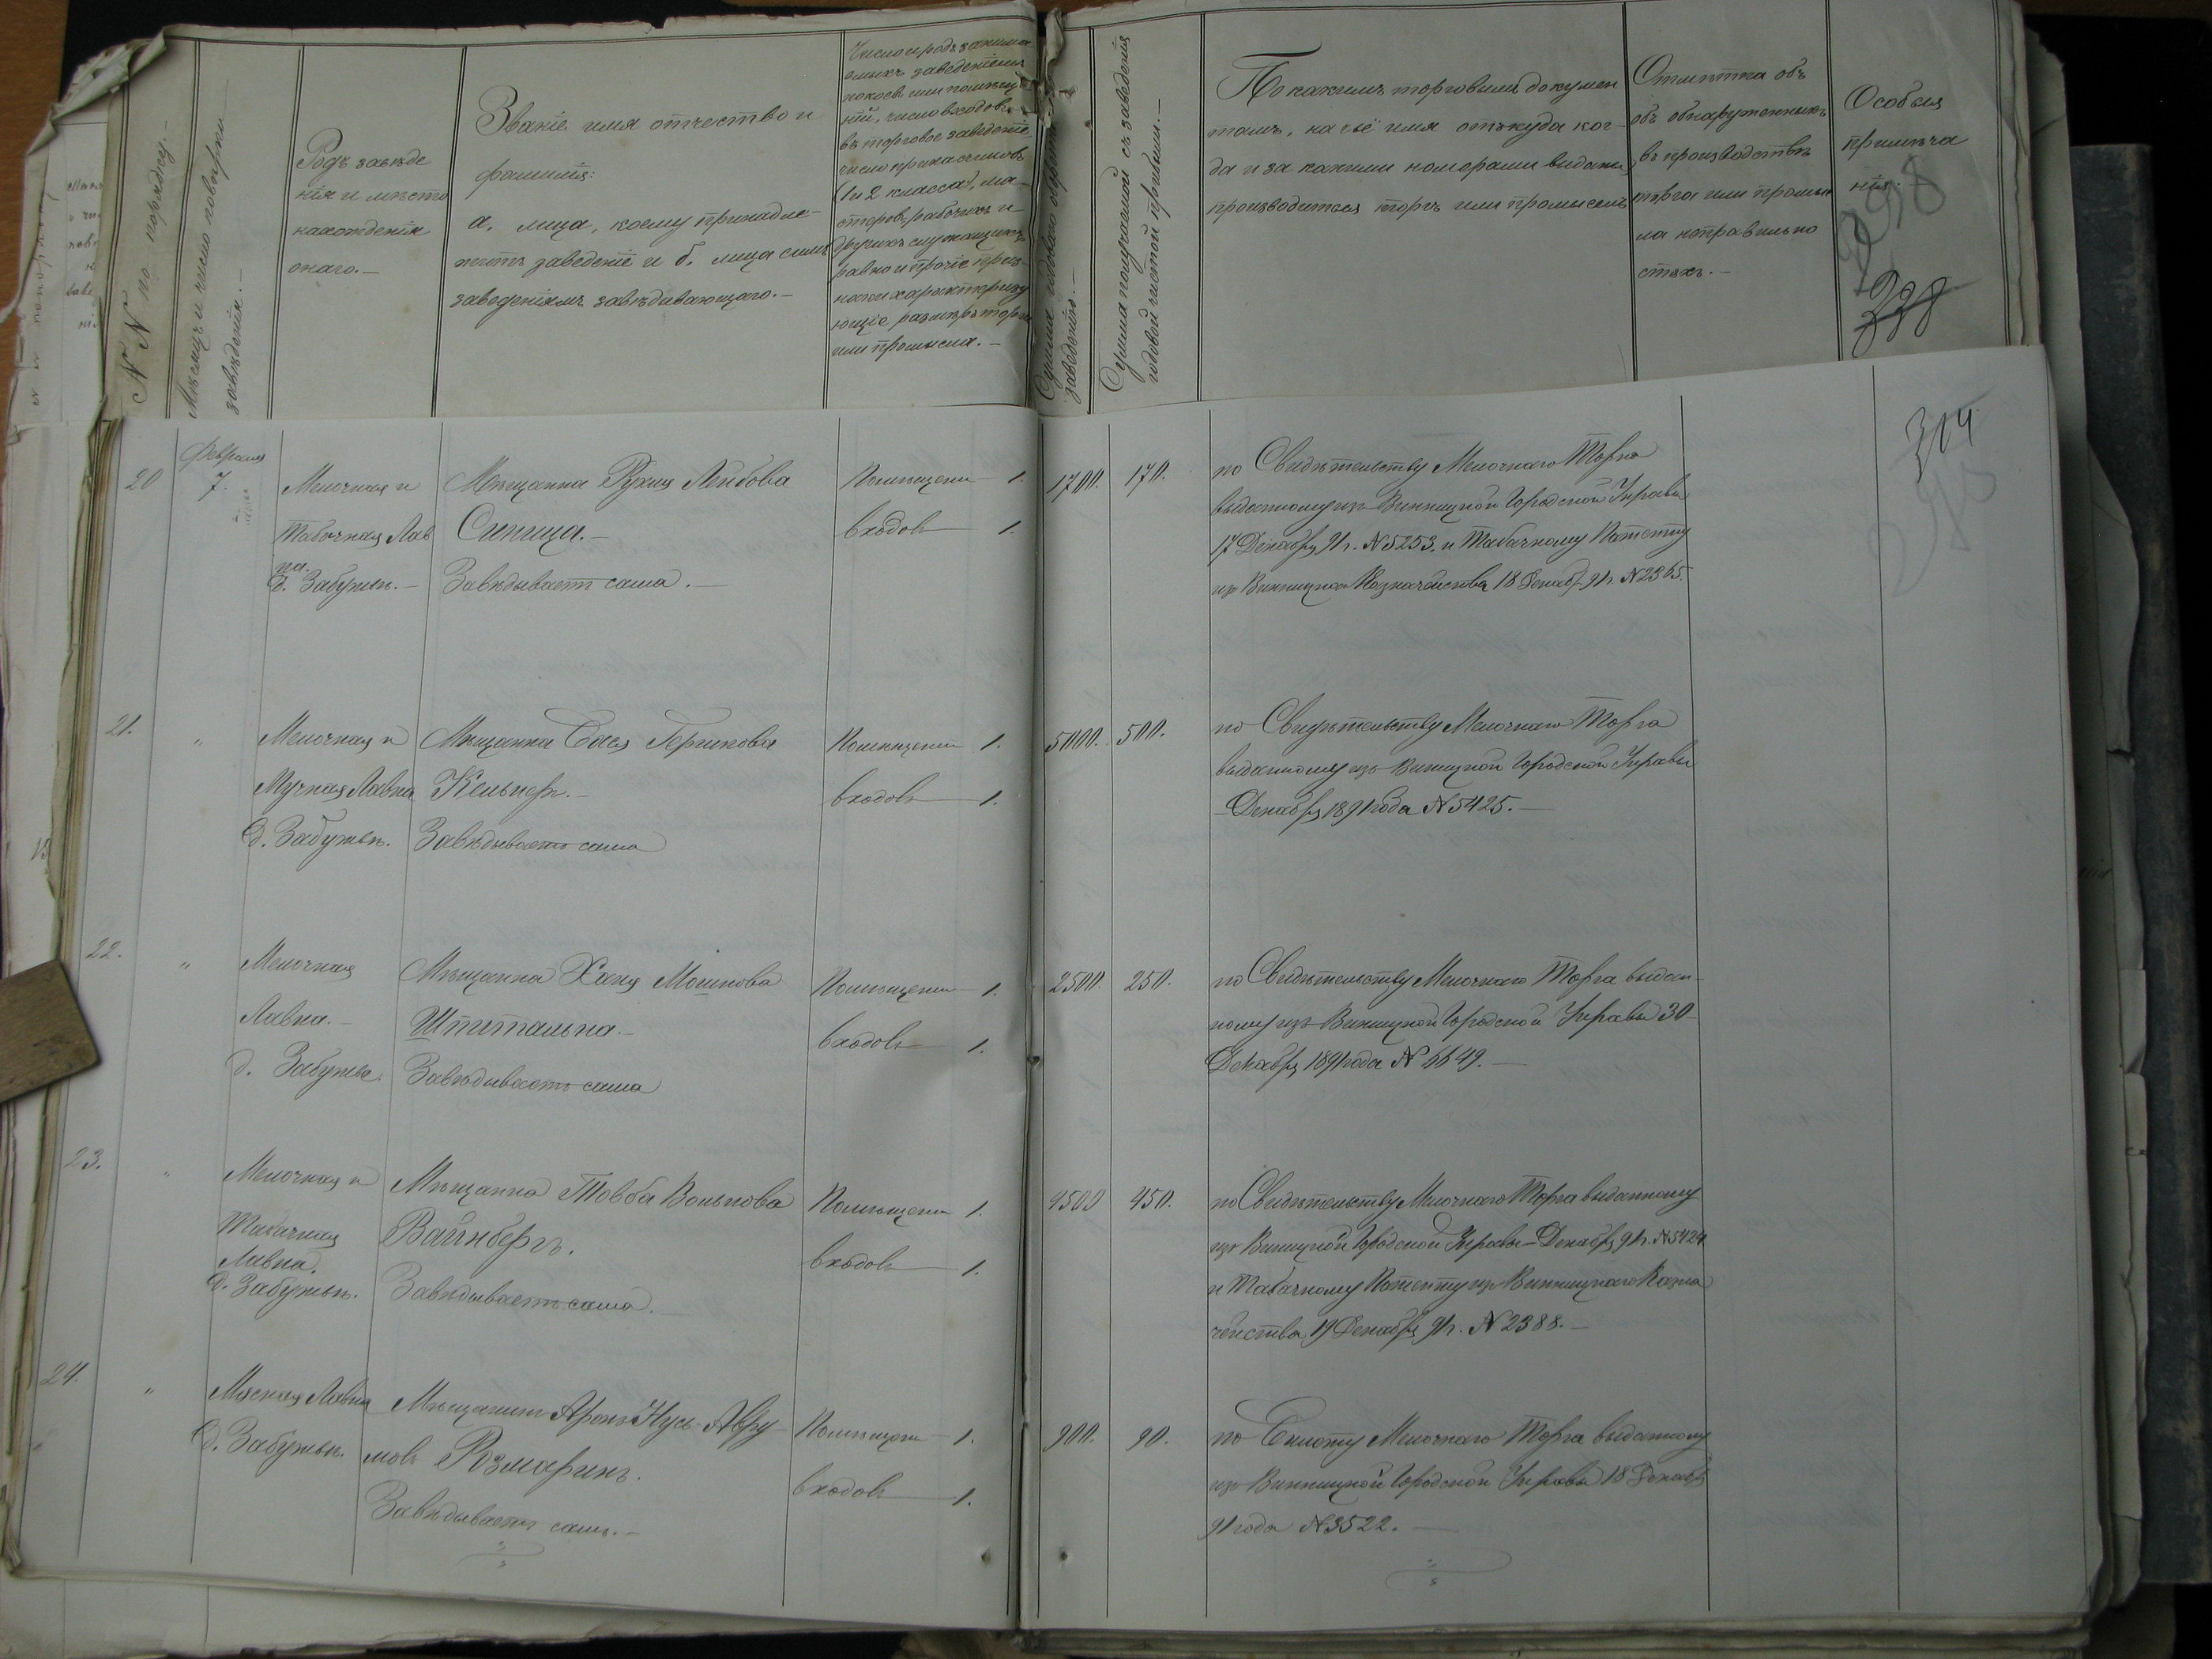 №№ по порядку.
Мѣсяцъ и число повѣрки
заведенія.
Родъ заведе
нія и мѣсто
нахожденія
онаго.
Званіе имя отчество и
фамилія:
а. лица, коему принадле-
житъ заведеніе и б. лица симъ
заведеніемъ завѣдывающаго.
Число и родъ занима
емыхъ заведеніемъ
покоевъ или помѣще
ній, число входовъ
въ торговое заведеніе,
число прикащиковъ
(1 и 2 класса), ма-
стеровъ, рабочихъ и
другихъ служащихъ,
равно и прочіе приз-
наки характеризу
ющіе размѣръ торга
или промысла.
Сумма годоваго оборота
заведенію.
Сумма получаемой съ заведенія
годовой чистой прибыли.
По какимъ торговымъ докумен
тамъ, на чьё имя откуда ког-
да и за какими номерами выданы
производится торгъ или промыселъ
Отмѣтка объ
объ обнаруженныхъ
въ производствѣ
торга или промыс
ла неправильно
стяхъ.
Особыя
примѣча
нія.
298
328
314
20
Февраля
7.
Мелочная и
Табачная Лав
ка.
д. Забужье.
Мѣщанка Рухля Лейбова
Синица.
Завѣдываетъ сама.
Помѣщеній 1.
входовъ 1.
1700. 170.
по Свидѣтельству Мелочнаго Торга
выданному изъ Винницкой Городской Управы
17 Декабря 91 г. № 5253, и Табачному Патенту
изъ Винницкаго Казначейства 18 Декаб. 91 г. № 2365.
21. "
Мелочная и
Мучная Лавка
д. Забужье.
Мѣщанка Бася Гершкова
Кельнеръ.
Завѣдываетъ сама
Помѣщеній 1.
входовъ 1.
5000. 500.
по Свидѣтельству Мелочнаго Торга
выданному изъ Винницкой Городской Управы
Декабря 1891 года № 5425.
22. "
Мелочная
Лавка.
д. Забужье.
Мѣщанка Хана Мошкова
Штитальна.
Завѣдываетъ сама
Помѣщеній 1.
входовъ 1.
2500. 250.
по Свидѣтельству Мелочнаго Торга выдан-
ному изъ Винницкой Городской Управы 30
Декабря 1891 года № 6649.
23. "
Мелочная и
Табачная
Лавка.
д. Забужье.
Мѣщанка Товба Волькова
Вайнбергъ.
Завѣдываетъ сама.
Помѣщеній 1.
входовъ 1.
4500 450.
по Свидѣтельству Мелочнаго Торга выданному
изъ Винницкой Городской Управы Декабря 91 г. № 5424
и Табачному Патенту изъ Винницкаго Казна
чейства 19 Декабря 91 г. № 2388.
24. "
Мясная Лавка
д. Забужье.
Мѣщанинъ Аронъ Нусь Авру
мовъ Розмаринъ.
Завѣдываетъ самъ.
Помѣщеній 1.
входовъ 1.
900. 90.
по Билету Мелочнаго Торга выданному
изъ Винницкой Городской Управы 18 Декабря
91 года № 3522.